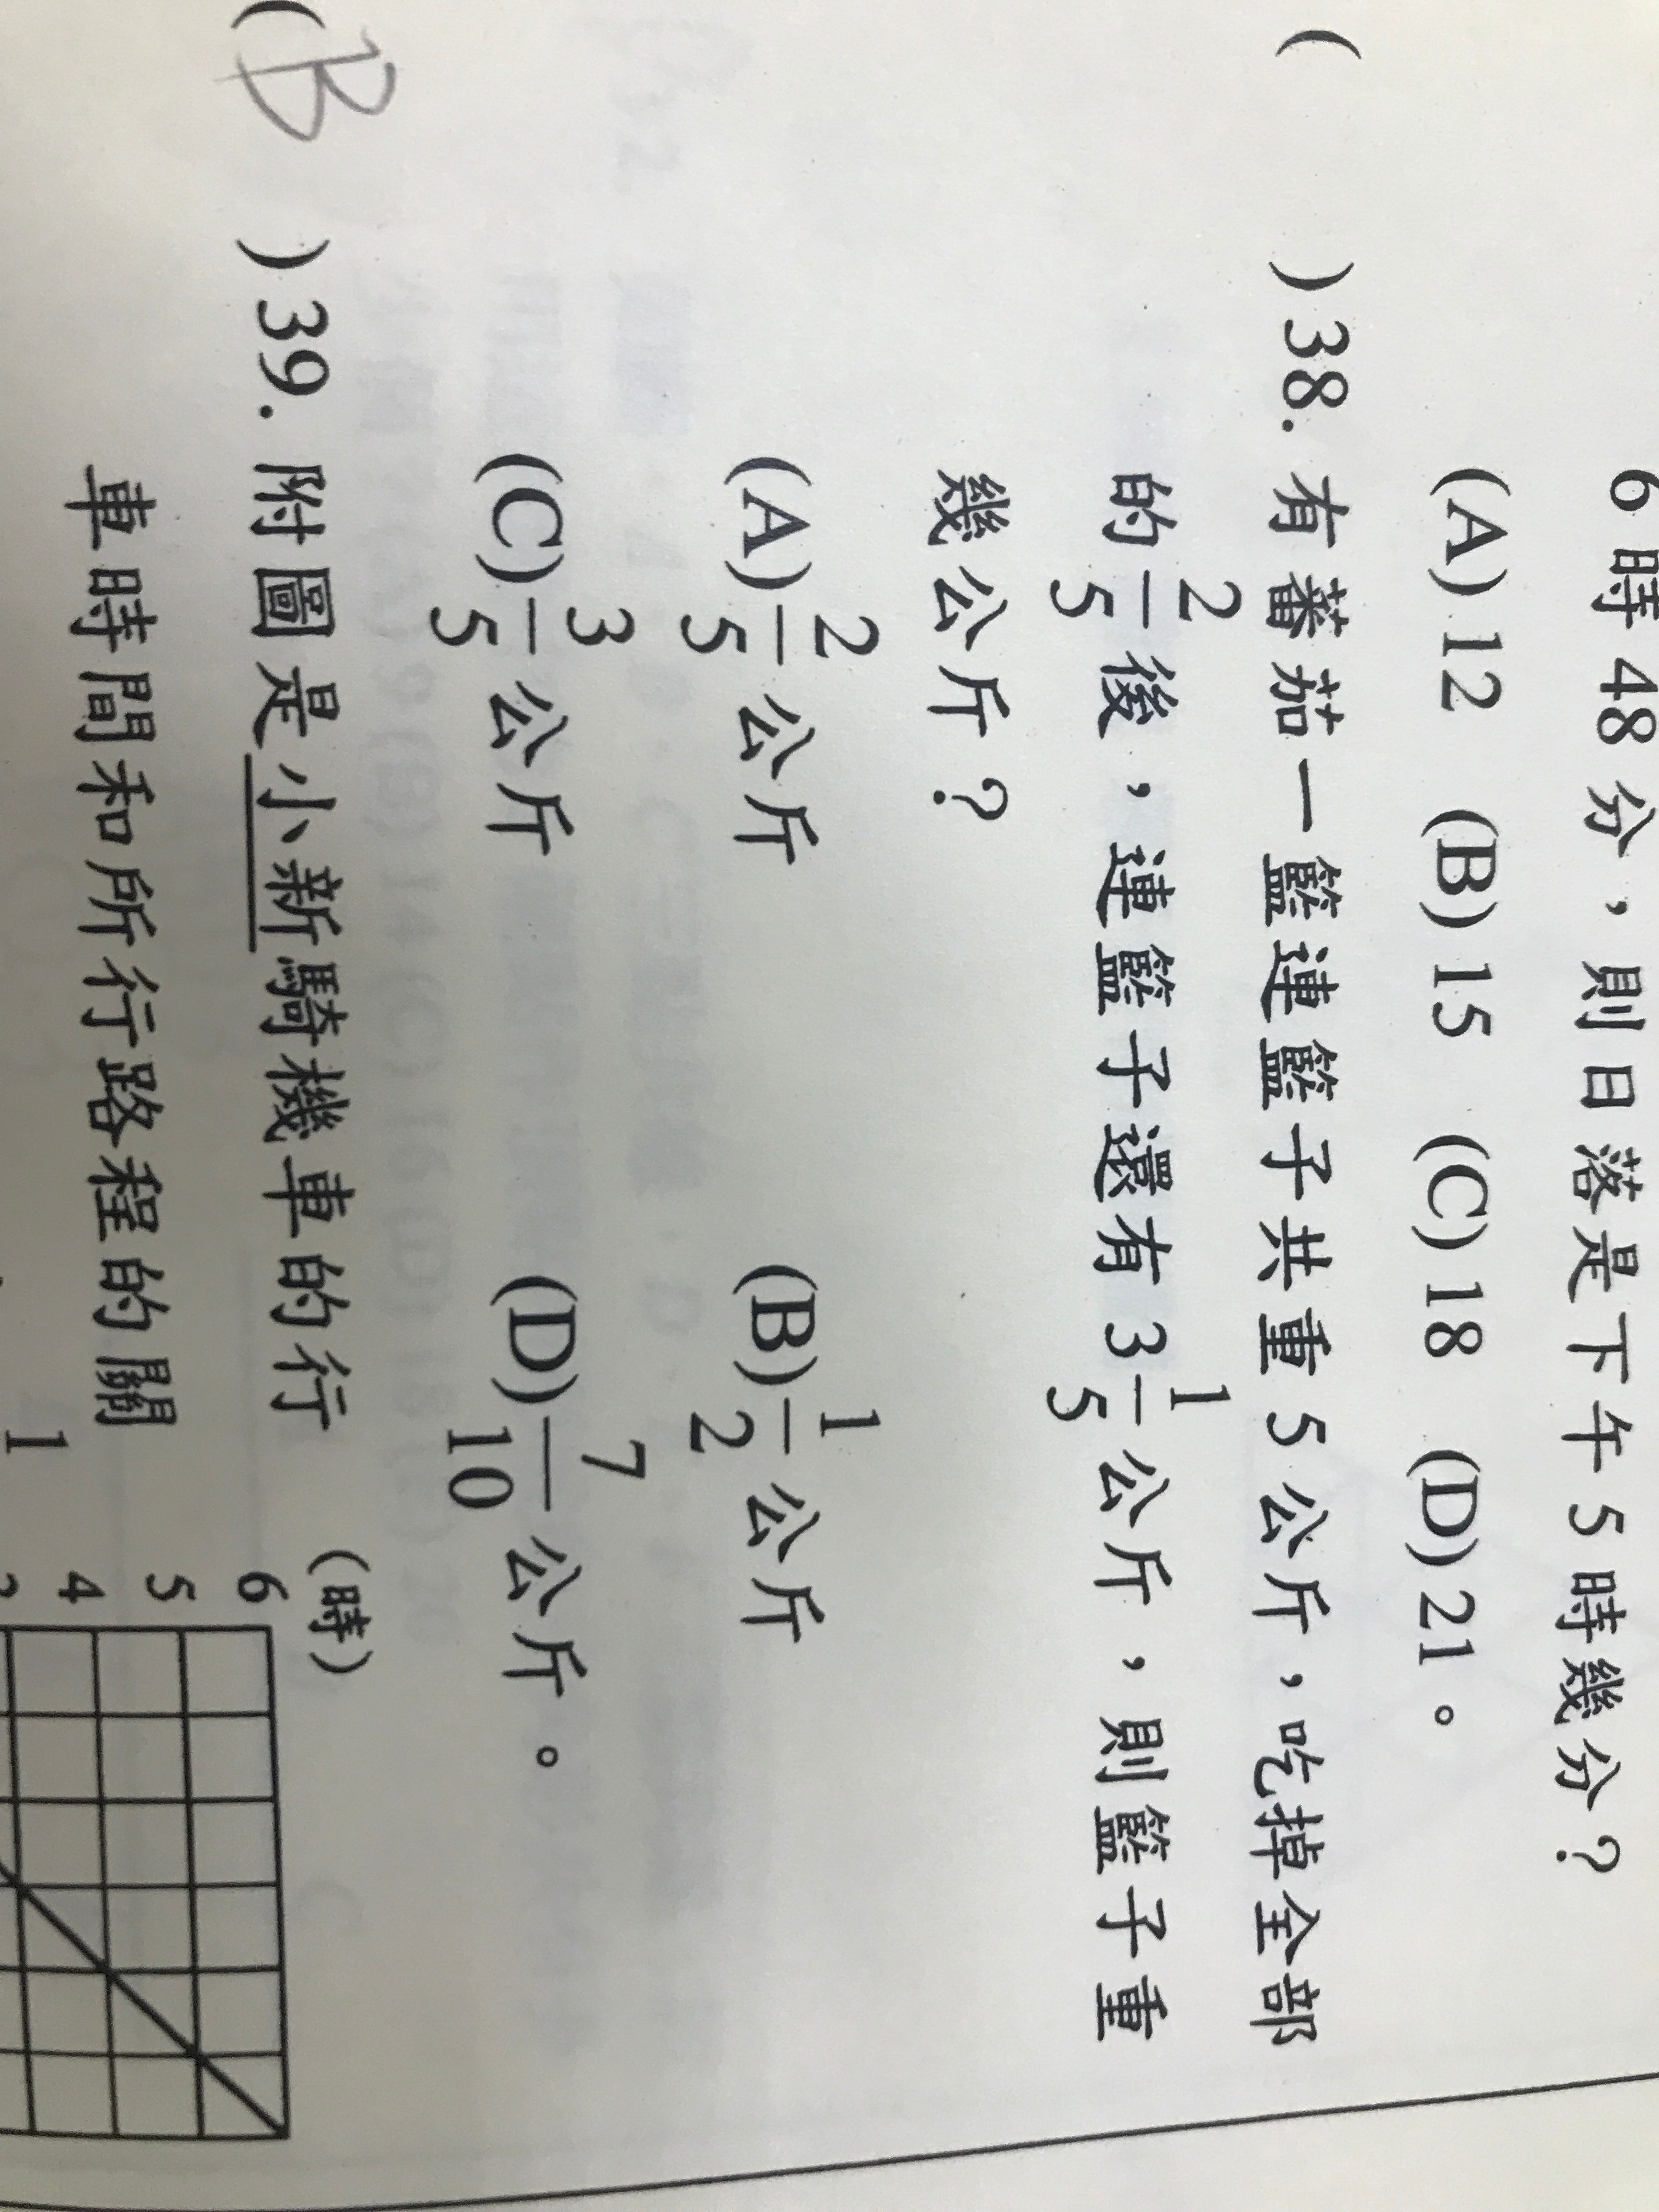 6 時 48 分，則日落是下午 5 時幾分？
(A) 12 (B) 15 (C) 18 (D) 21。
( ) 38. 有蕃茄一籃連籃子共重 5 公斤，吃掉全部
的 2/5 後，連籃子還有 3 1/5 公斤，則籃子重
幾公斤？
(A) 2/5 公斤 (B) 1/2 公斤
(C) 3/5 公斤 (D) 7/10 公斤。
( B ) 39. 附圖是小新騎機車的行
車時間和所行路程的關
(時)
6
5
4
1